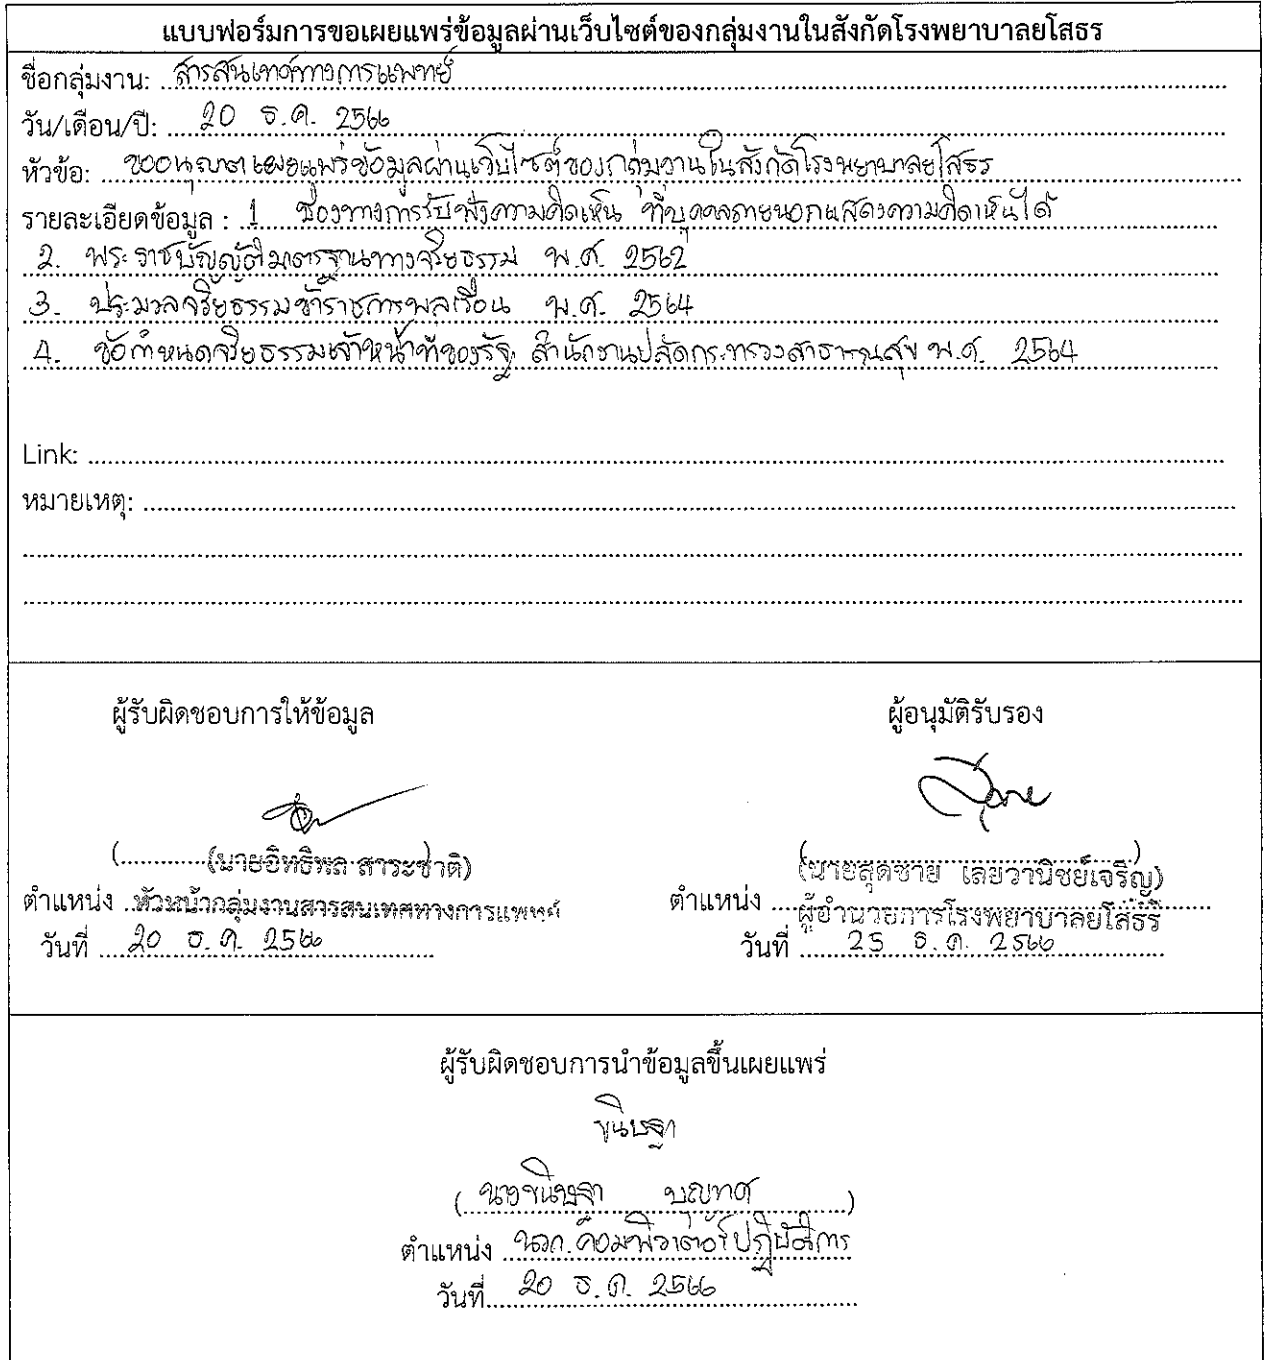 แบบฟอร์มการขอเผยแพร่ข้อมูลผ่านเว็บไซต์ของกลุ่มงานในสังกัดโรงพยาบาลยโสธร
ชื่อกลุ่มงาน: สารสนเทศทางการแพทย์
วัน/เดือน/ปี: 20 ธ.ค. 2566
หัวข้อ: ขออนุญาตเผยแพร่ข้อมูลผ่านเว็บไซต์ของกลุ่มงานในสังกัดโรงพยาบาลยโสธร
รายละเอียดข้อมูล : 1 ช่องทางการรับฟังความคิดเห็น ที่บุคคลภายนอกแสดงความคิดเห็นได้
2. พระราชบัญญัติมาตรฐานทางจริยธรรม พ.ศ. 2562
3. ประมวลจริยธรรมข้าราชการพลเรือน พ.ศ. 2564
4. ข้อกำหนดจริยธรรมเจ้าหน้าที่ของรัฐ สำนักงานปลัดกระทรวงสาธารณสุข พ.ศ. 2564
Link:
หมายเหตุ:
ผู้รับผิดชอบการให้ข้อมูล ผู้อนุมัติรับรอง
(นายอิทธิพล สาระชาติ) (นายสุดชาย เลยวานิชย์เจริญ)
ตำแหน่ง หัวหน้ากลุ่มงานสารสนเทศทางการแพทย์ ตำแหน่ง ผู้อำนวยการโรงพยาบาลยโสธร
วันที่ 20 ธ.ค. 2566 วันที่ 25 ธ.ค. 2566
ผู้รับผิดชอบการนำข้อมูลขึ้นเผยแพร่
ขนิษฐา
(นางขนิษฐา บุญทศ)
ตำแหน่ง นวก.คอมพิวเตอร์ปฏิบัติการ
วันที่ 20 ธ.ค. 2566